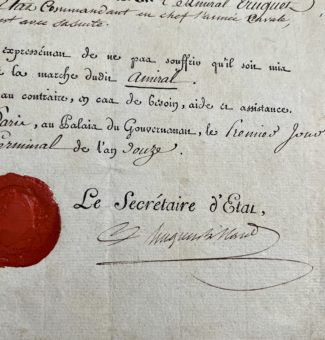 l'amiral Truguet
Commandant en chef l'armée Navale
et avec sa suite
expressément de ne pas souffrir qu'il soit mis
la marche dudit Amiral.
au contraire, en cas de besoin, aide et assistance.
Paris, au Palais du Gouvernement, le Premier Jour
Germinal de l'an Douze.
Le Secrétaire d'État,
Hugues B. Maret